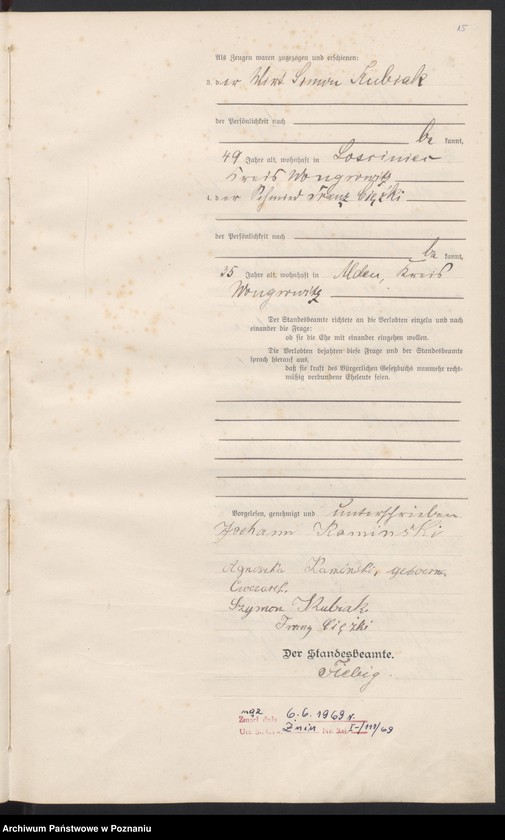 15
Als Zeugen waren zugezogen und erschienen:
3. der Wirt Simon Kubiak
der Persönlichkeit nach
be kannt,
49 Jahre alt, wohnhaft in
Kreis Wongrowitz
4. der Schmied Franz Ciężki
der Persönlichkeit nach
be kannt,
35 Jahre alt, wohnhaft in Kreis
Wongrowitz
Der Standesbeamte richtete an die Verlobten einzeln und nach
einander die Frage:
ob sie die Ehe mit einander eingehen wollen.
Die Verlobten bejahten diese Frage und der Standesbeamte
sprach hierauf aus,
daß sie kraft des Bürgerlichen Gesetzbuchs nunmehr recht-
mäßig verbundene Eheleute seien.
Vorgelesen, genehmigt und unterschrieben
Johann Kaminski
Agneska Kaminski, geborene
Szymon Kubiak
Franz Ciężki
Der Standesbeamte.
Fiebig.
mąż
Zmarł dnia 6.6.1969 r.
Żnin Nr. I-/111/69
Archiwum Państwowe w Poznaniu